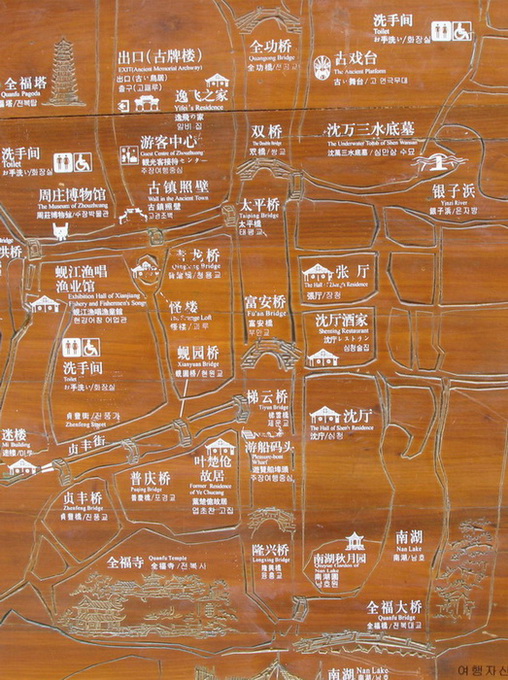 洗手间
Toilet
お手洗い/화장실
全功桥
Quangong Bridge
全功橋/전공교
出口(古牌楼)
EXIT(Ancient Memorial Archway)
出口(古い鳥居)
출구(고패루)
古戏台
The Ancient Platform
古い舞台/고 연극무대
全福塔
Quanfu Pagoda
福塔/전복탑
逸飞之家
Yifei's Residence
逸飛の家
일비 집
双桥
The Double Bridge
双橋/쌍교
沈万三水底墓
The Underwater Tomb of Shen Wansan
沈萬三水底墓/심만삼 수묘
洗手间
Toilet
お手洗い/화장실
游客中心
Guest Center of Zhouzhuang
観光客接待センター
주장여행중심
古镇照壁
Wall in the Ancient Town
古鎮照壁
고진조벽
银子浜
Yinzi River
銀子浜/은자방
周庄博物馆
The Museum of Zhouzhuang
周荘博物館/주장박물관
太平桥
Taiping Bridge
太平橋
태평교
Bridge
洪桥
龙桥
Bridge
张厅
The Hall of Zhang's Residence
張厅/장청
蚬江渔唱
渔业馆
Exhibition Hall of Xianjiang
Fishery and Fishermen's Songs
蜆江漁唱漁業館
현강어창 어업관
怪楼
The Strange Loft
怪楼/괴루
富安桥
Fu'an Bridge
富安橋
부안교
沈厅酒家
Shenting Restaurant
沈厅レストラン
심청술집
蚬园桥
Xianyuan Bridge
蜆園橋/현원교
洗手间
Toilet
お手洗い/화장실
梯云桥
Tiyun Bridge
梯雲橋
제운교
贞丰街
貞豊街/전풍가
Zhenfeng Street
沈厅
The Hall of Shen's Residence
沈厅/심청
迷楼
Mi Building
迷楼/미루
游船码头
Pleasure-boat
Wharf
遊覧船埠頭
주장여행중심
叶楚伧
故居
Former Residence
of Ye Chucang
葉楚傖故居
엽초창 고집
普庆桥
Puqing Bridge
普慶橋/포경교
贞丰桥
Zhenfeng Bridge
貞豊橋/전풍교
隆兴桥
Longxing Bridge
隆興橋
륭흥교
南湖秋月园
Qiuyue Garden of
Nan Lake
南湖園
남호원
南湖
Nan Lake
南湖/남호
全福寺
Quanfu Temple
全福寺/전복시
全福大桥
Quanfu Bridge
全福橋/전복대교
南湖
Nan Lake
南湖/남호
여행자